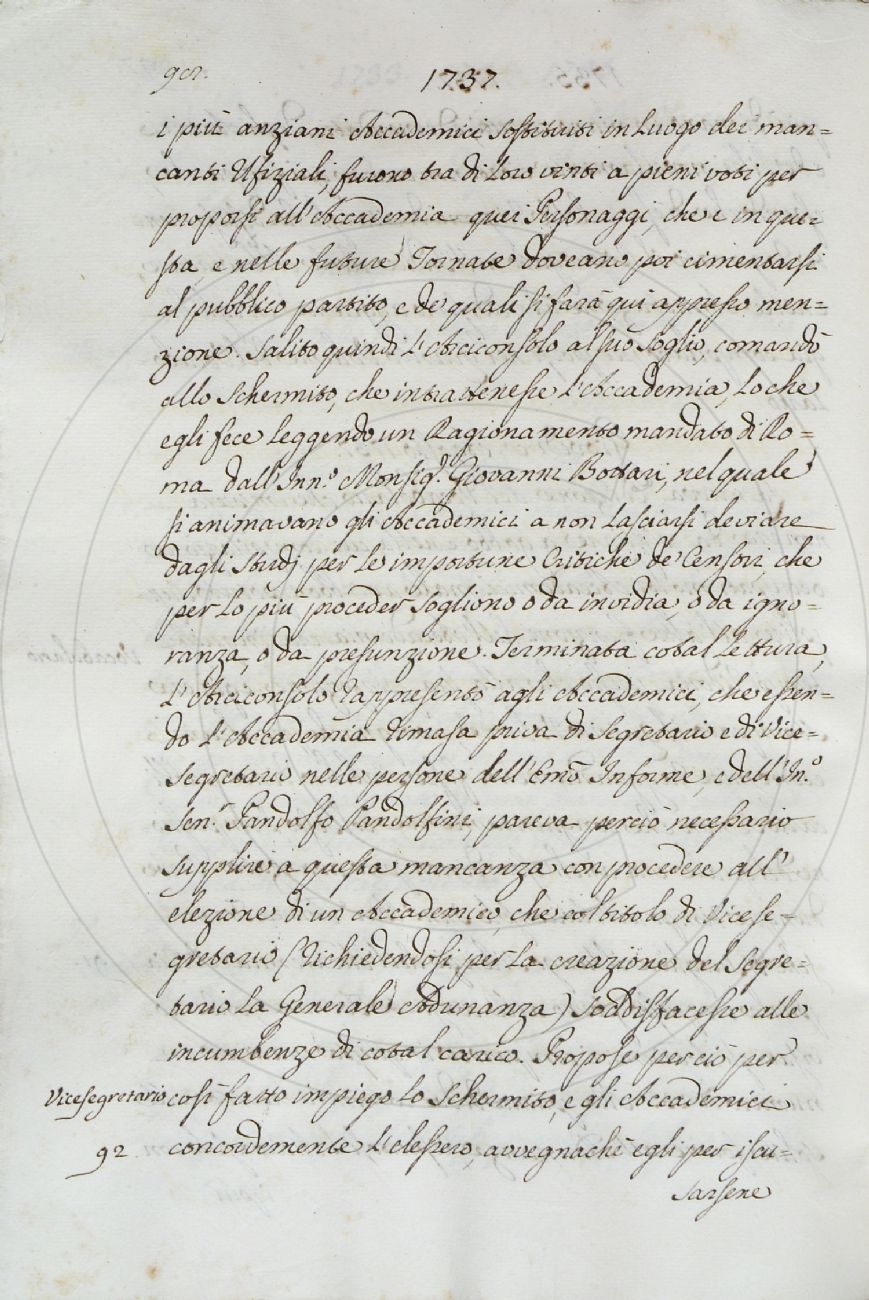 902.
1737.
i più anziani Accademici sostituiti in luogo dei man=
canti Ufiziali, furono tra di loro vinti a pieni voti per
proporsi all'Accademia quei Personaggi, che e in que=
sta, e nelle future Tornate doveano poi cimentarsi
al pubblico partito, e de quali si farà qui appresso men=
zione. Salito quindi l'Arciconsolo al suo Soglio, comandò
allo Schermito, che intrattenesse l'Accademia, lo che
egli fece leggendo un Ragionamento mandato di Ro=
ma dall'Inn.º Monsig.r Giovanni Bottari, nel quale
si animavano gli Accademici a non lasciarsi deviare
dagli Studj per le importune Critiche de' Censori, che
per lo più proceder sogliono o da invidia, o da igno=
ranza, o da presunzione. Terminata cotal lettura,
l'Arciconsolo rappresentò agli Accademici, che essen=
do l'Accademia rimasa priva di Segretario e di Vice=
segretario nelle persone dell'Emo Informe, e dell'In.º
Sen.r Pandolfo Pandolfini, pareva perciò necessario
supplire a questa mancanza con procedere all'
elezione di un Accademico, che col titolo di Vicese=
gretario (richiedendosi per la creazione del Segre=
tario la Generale Adunanza) soddisfacesse alle
incumbenze di cotal carico. Propose perciò per
Vicesegretario
così fatto impiego lo Schermito, e gli Accademici
92
concordemente l'elessero, avvegnachè egli per iscu=
sarsene